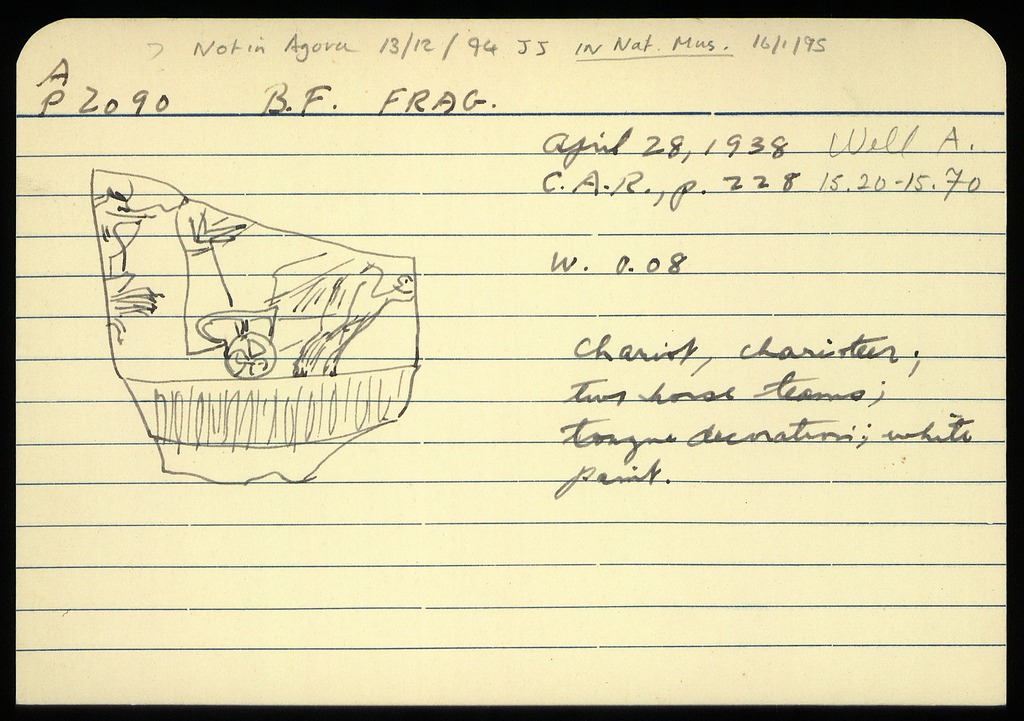 > Not in Agora 13/12/94 JJ IN Nat. Mus. 16/1/95
A
P 2090 B.F. FRAG.
April 28, 1938 Well A.
C.A.R., p. 228 15.20-15.70
W. 0.08
Chariot, charioteer;
two horse teams;
tongue decoration; white
paint.